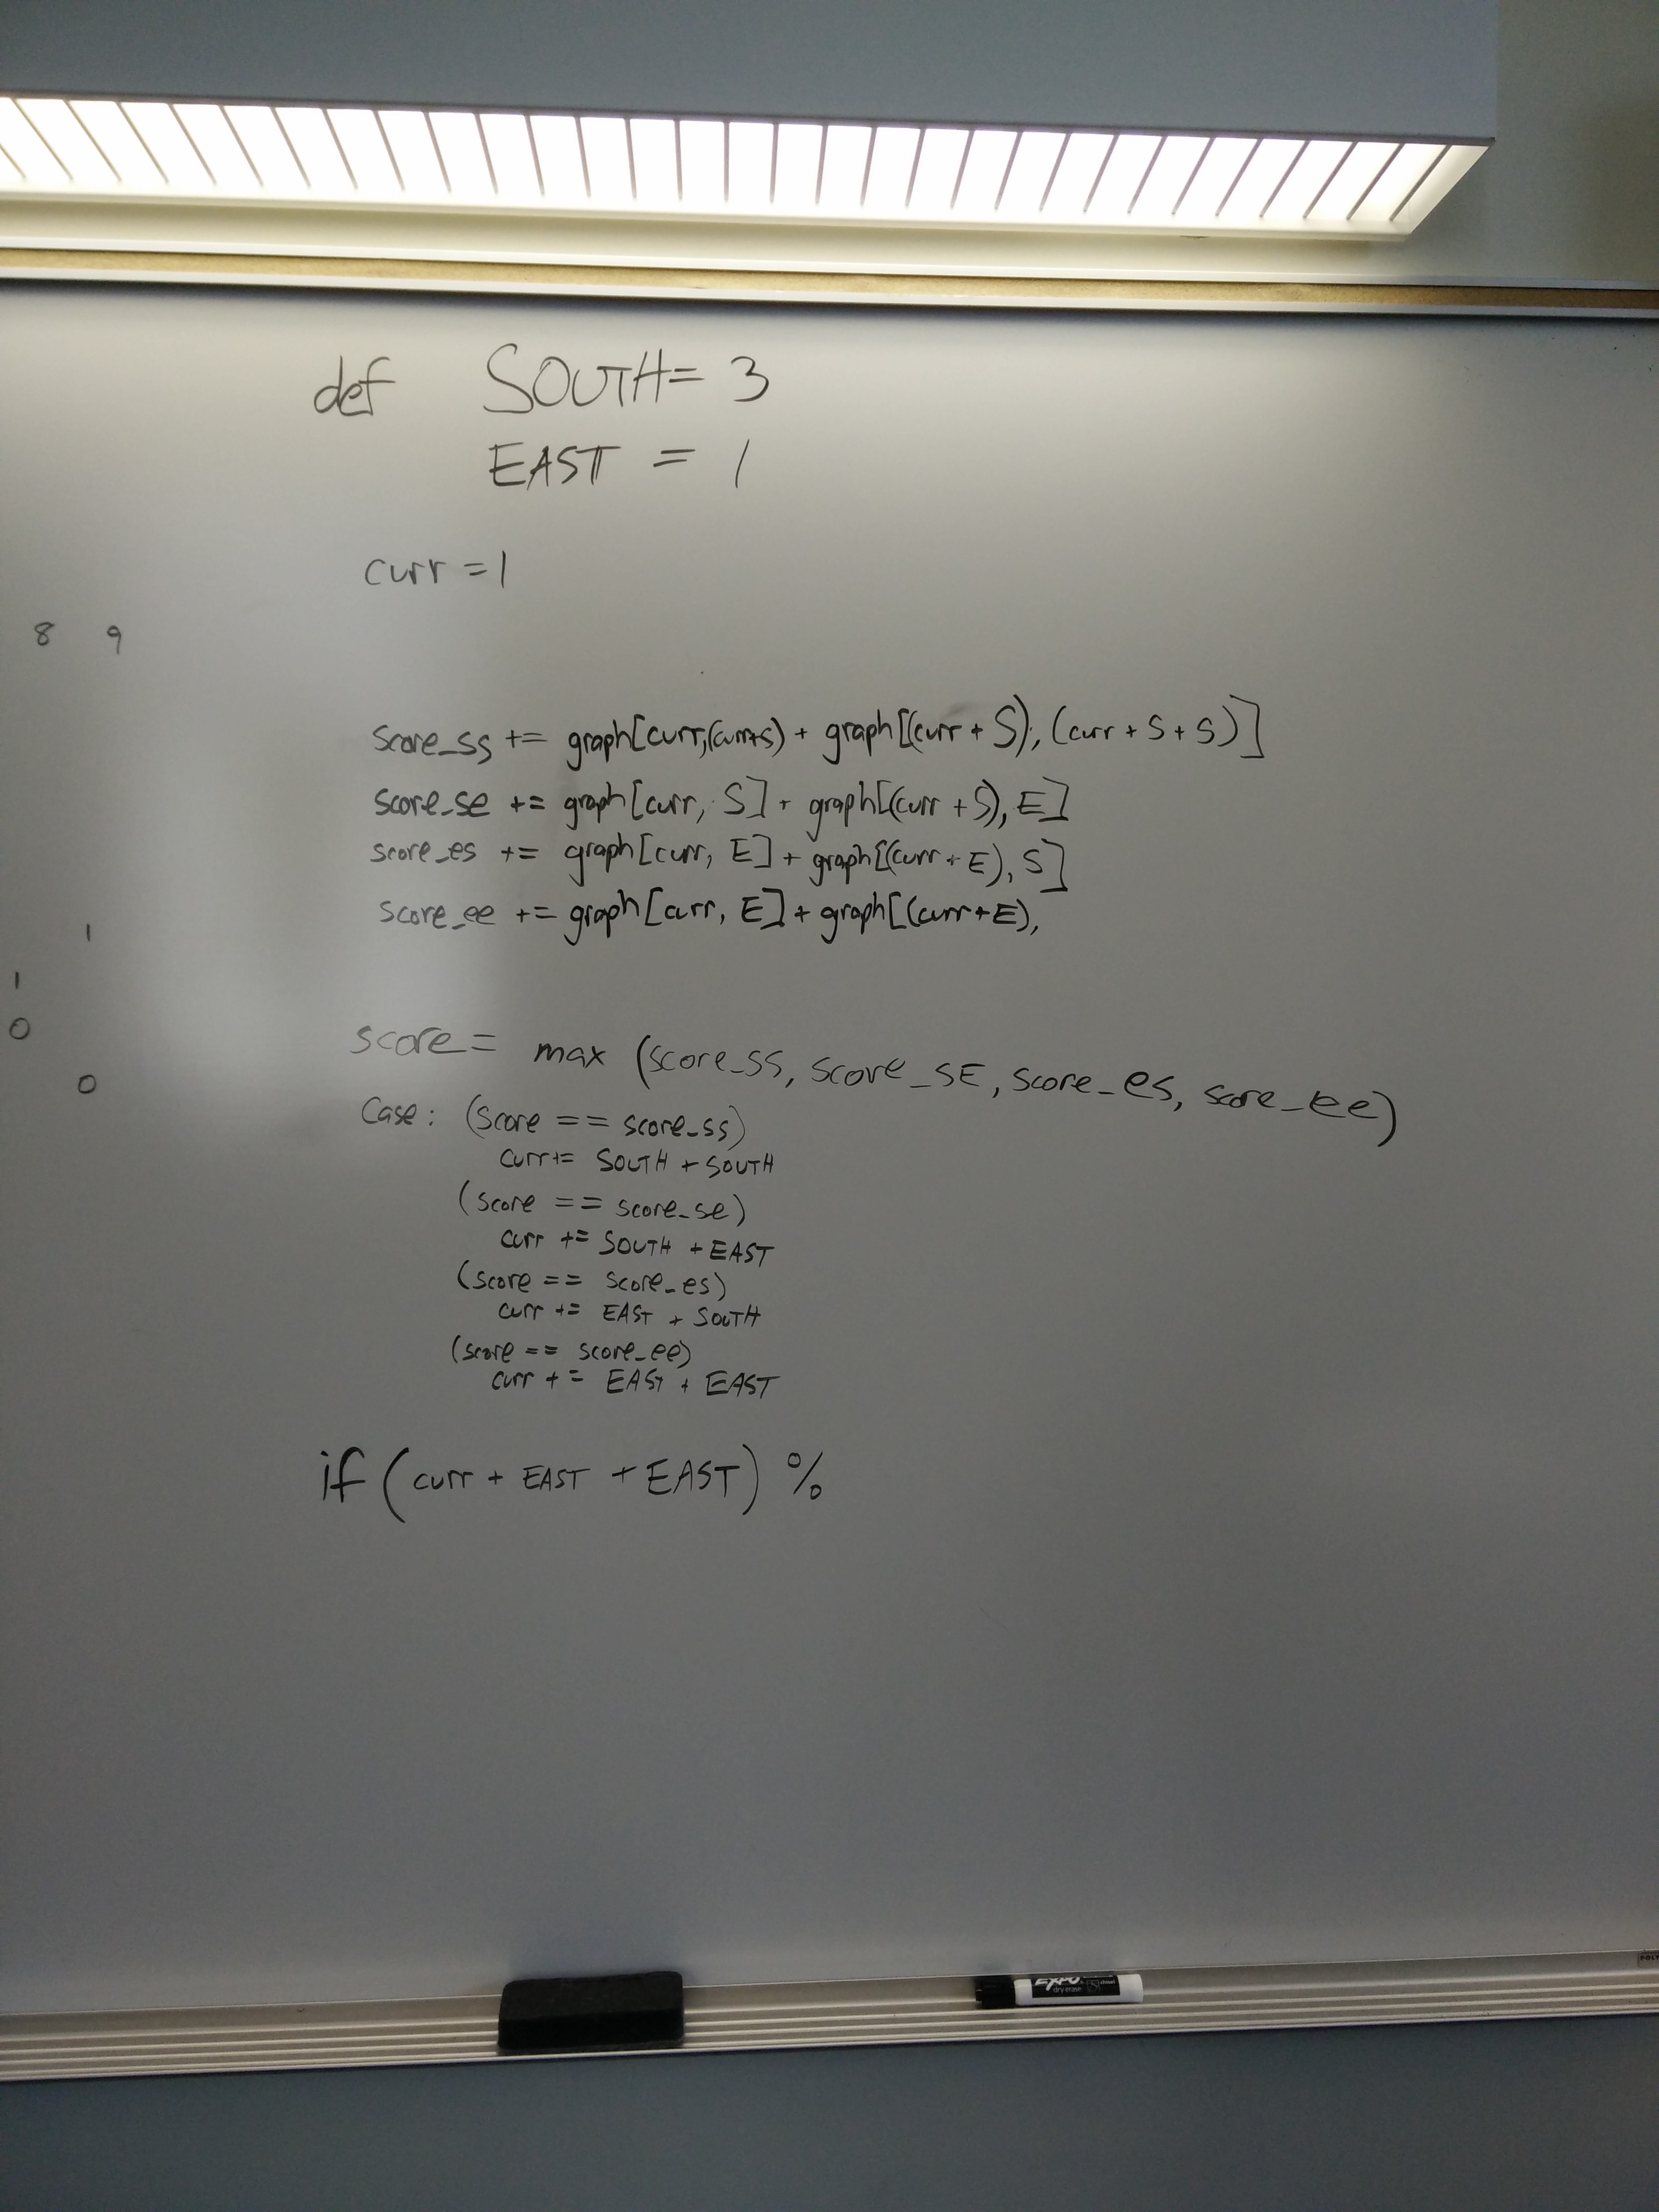 def SOUTH = 3
EAST = 1
curr = 1
8 9
score_ss += graph[curr,(curr+s) + graph[(curr + S), (curr + S + S)]
score_se += graph[curr, S] + graph[(curr + S), E]
score_es += graph[curr, E] + graph[(curr + E), S]
score_ee += graph[curr, E] + graph[(curr+E),
1
1
0
score = max (score_ss, score_SE, score_es, score_ee)
0
Case: (score == score_ss)
curr += SOUTH + SOUTH
(score == score_se)
curr += SOUTH + EAST
(score == score_es)
curr += EAST + SOUTH
(score == score_ee)
curr += EAST + EAST
if (curr + EAST + EAST) %
EXPO
dry erase